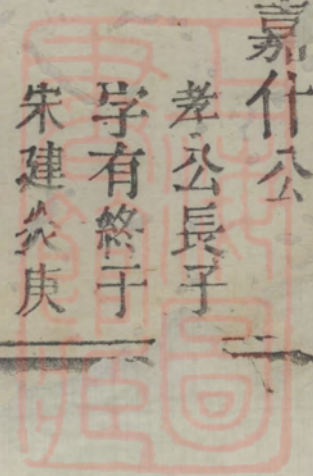 嘉什公
孝公長子
字有終于
宋建炎庚